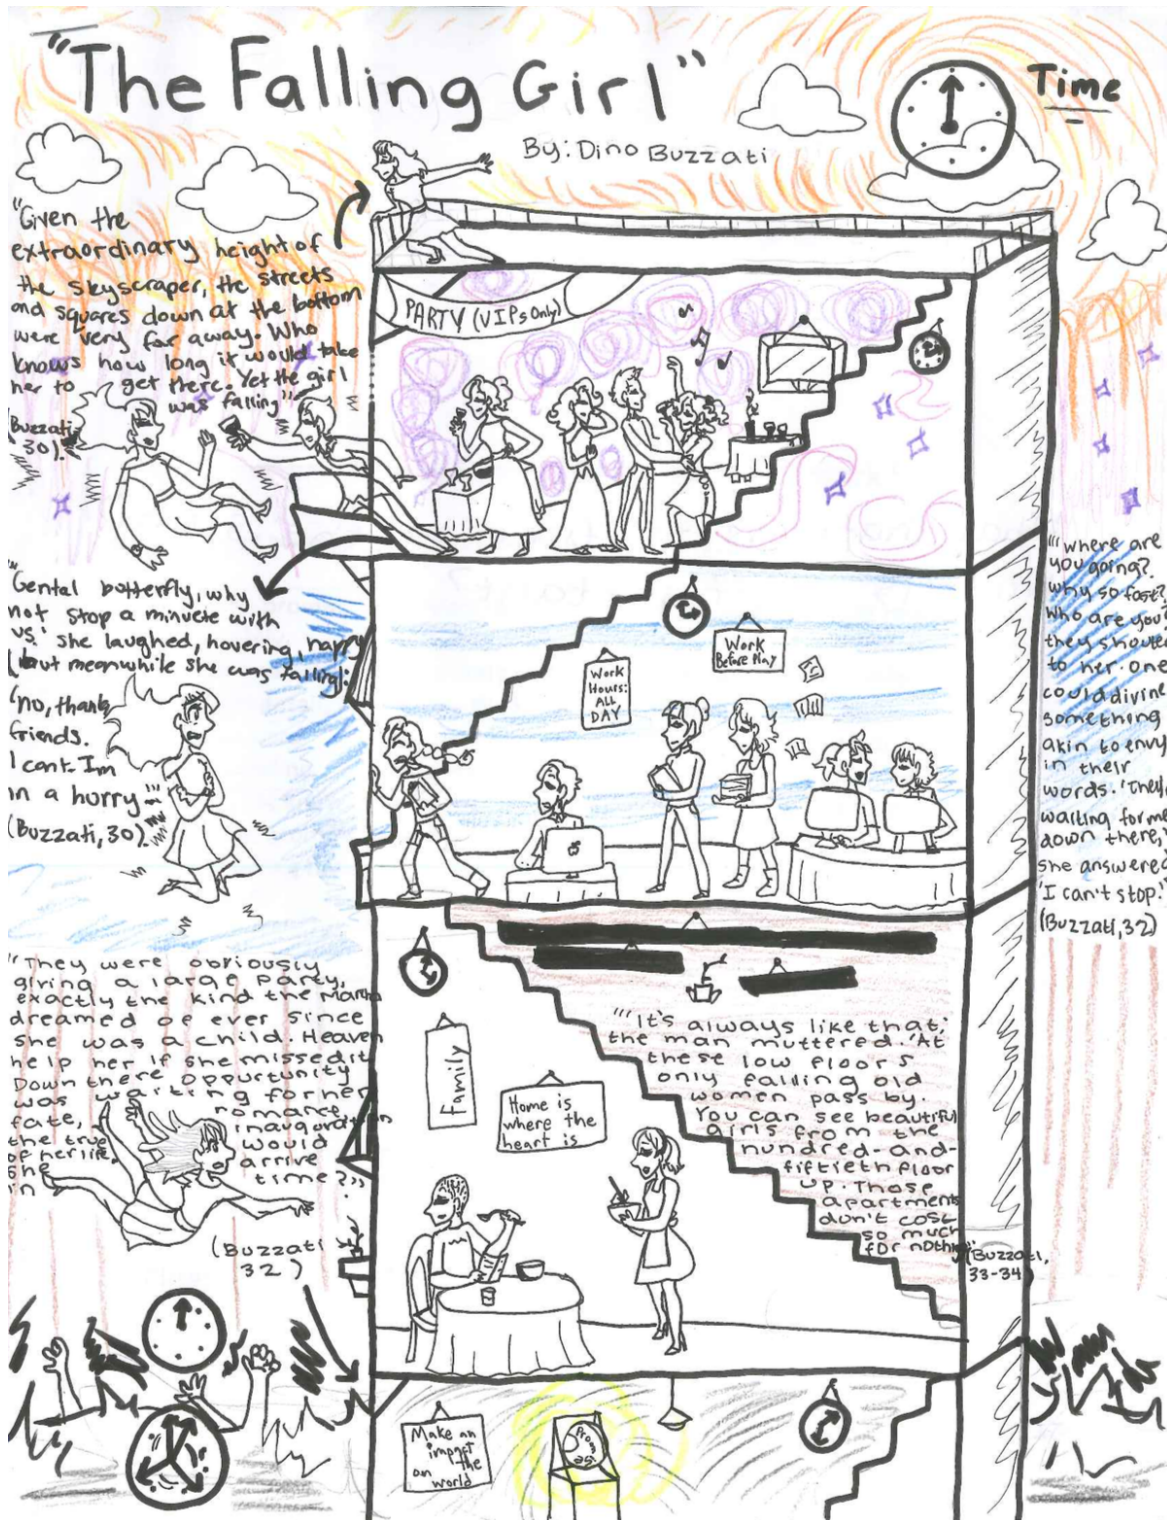 "The Falling Girl"
Time
By: Dino Buzzati
"Given the
extraordinary height of
the skyscraper, the streets
and squares down at the bottom
were very far away. Who
knows how long it would take
her to get there. Yet the girl
was falling"
(Buzzati
30).
PARTY (VIPs Only)
"Gental butterfly, why
not stop a minuete with
us.' she laughed, hovering, happy
but meanwhile she was falling:
(no, thank
friends.
I cant. Im
in a hurry"
(Buzzati, 30).
Work
Hours:
ALL
DAY
Work
Before Play
"'Where are
you going?
Why so fast?
Who are you?
they shouted
to her. one
could divine
something
akin to envy
in their
words. 'They
waiting for me
down there,'
she answered
'I can't stop.'"
(Buzzati, 32)
"They were obviously
giving a large party,
exactly the kind the Marta
dreamed of ever since
she was a child. Heaven
help her if she missed it
Down there oppurtunity
was waiting for her
fate, romance,
the true inauguration
of her life, would
she arrive
in time?"
(Buzzati
32)
Family
Home is
where the
heart is
"'It's always like that,'
the man muttered. 'At
these low floors
only falling old
women pass by.
You can see beautiful
girls from the
hundred-and-
fiftieth floor
up. Those
apartments
don't cost
so much
for nothing"
(Buzzati,
33-34)
Make an
impact
on the
world